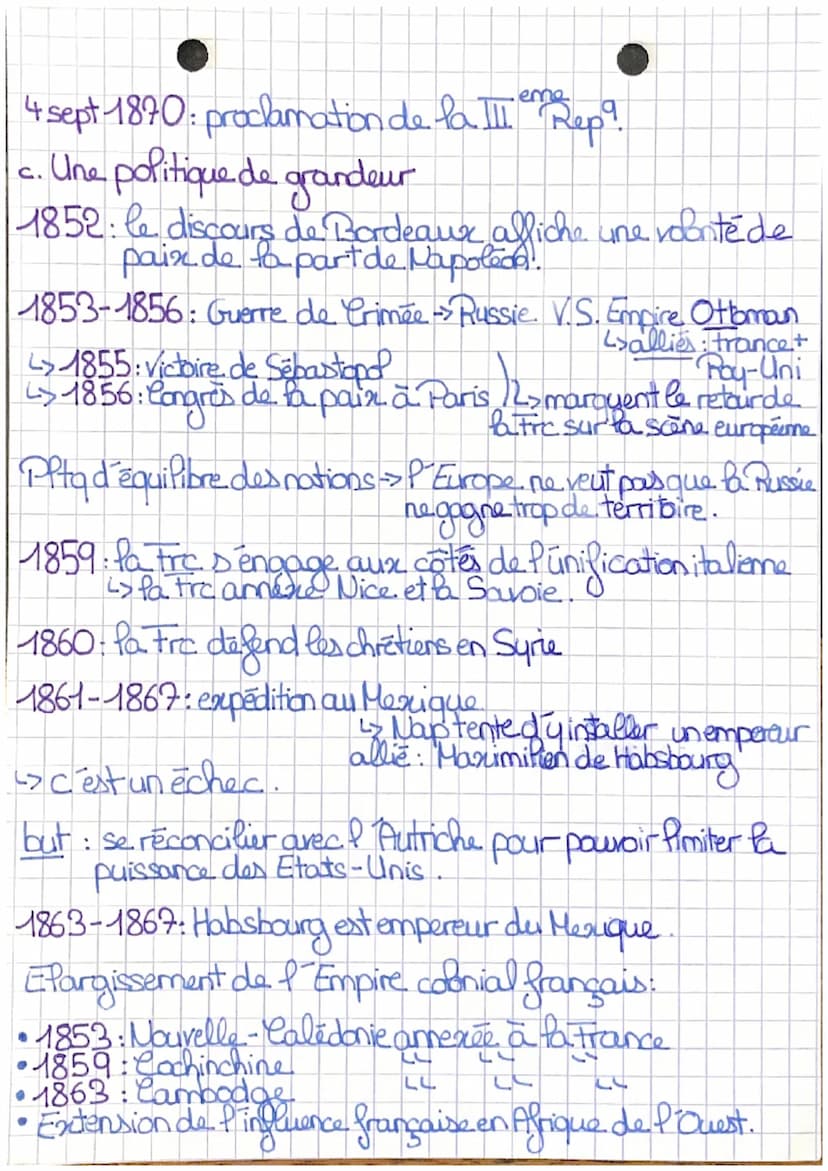 4 sept 1870 : proclamation de la III eme Rep°.
c. Une politique de grandeur
1852 : le discours de Bordeaux affiche une volonté de
paix de la part de Napoléon.
1853-1856 : Guerre de Crimée → Russie V.S. Empire Ottoman
↳ alliés : France +
↳ 1855 : victoire de Sébastopol
Roy-Uni
↳ 1856 : Congrès de la paix à Paris ↳ marquent le retour de
la Frc sur la scène européenne
Pltq d'équilibre des nations → l'Europe ne veut pas que la Russie
ne gagne trop de territoire.
1859 : la Frc s'engage aux côtés de l'unification italienne
↳ la Frc annexe Nice et la Savoie.
1860 : la Frc défend les chrétiens en Syrie
1861-1867 : expédition au Mexique
↳ Nap tente d'y intaller un empereur
allié : Maximilien de Habsbourg
↳ c'est un échec.
but : se réconcilier avec l'Autriche pour pouvoir limiter la
puissance des Etats-Unis.
1863-1867 : Habsbourg est empereur du Mexique.
Elargissement de l'Empire colonial français :
• 1853 : Nouvelle-Calédonie annexée à la France
• 1859 : Cochinchine " " "
• 1863 : Cambodge " " "
• Extension de l'influence française en Afrique de l'Ouest.